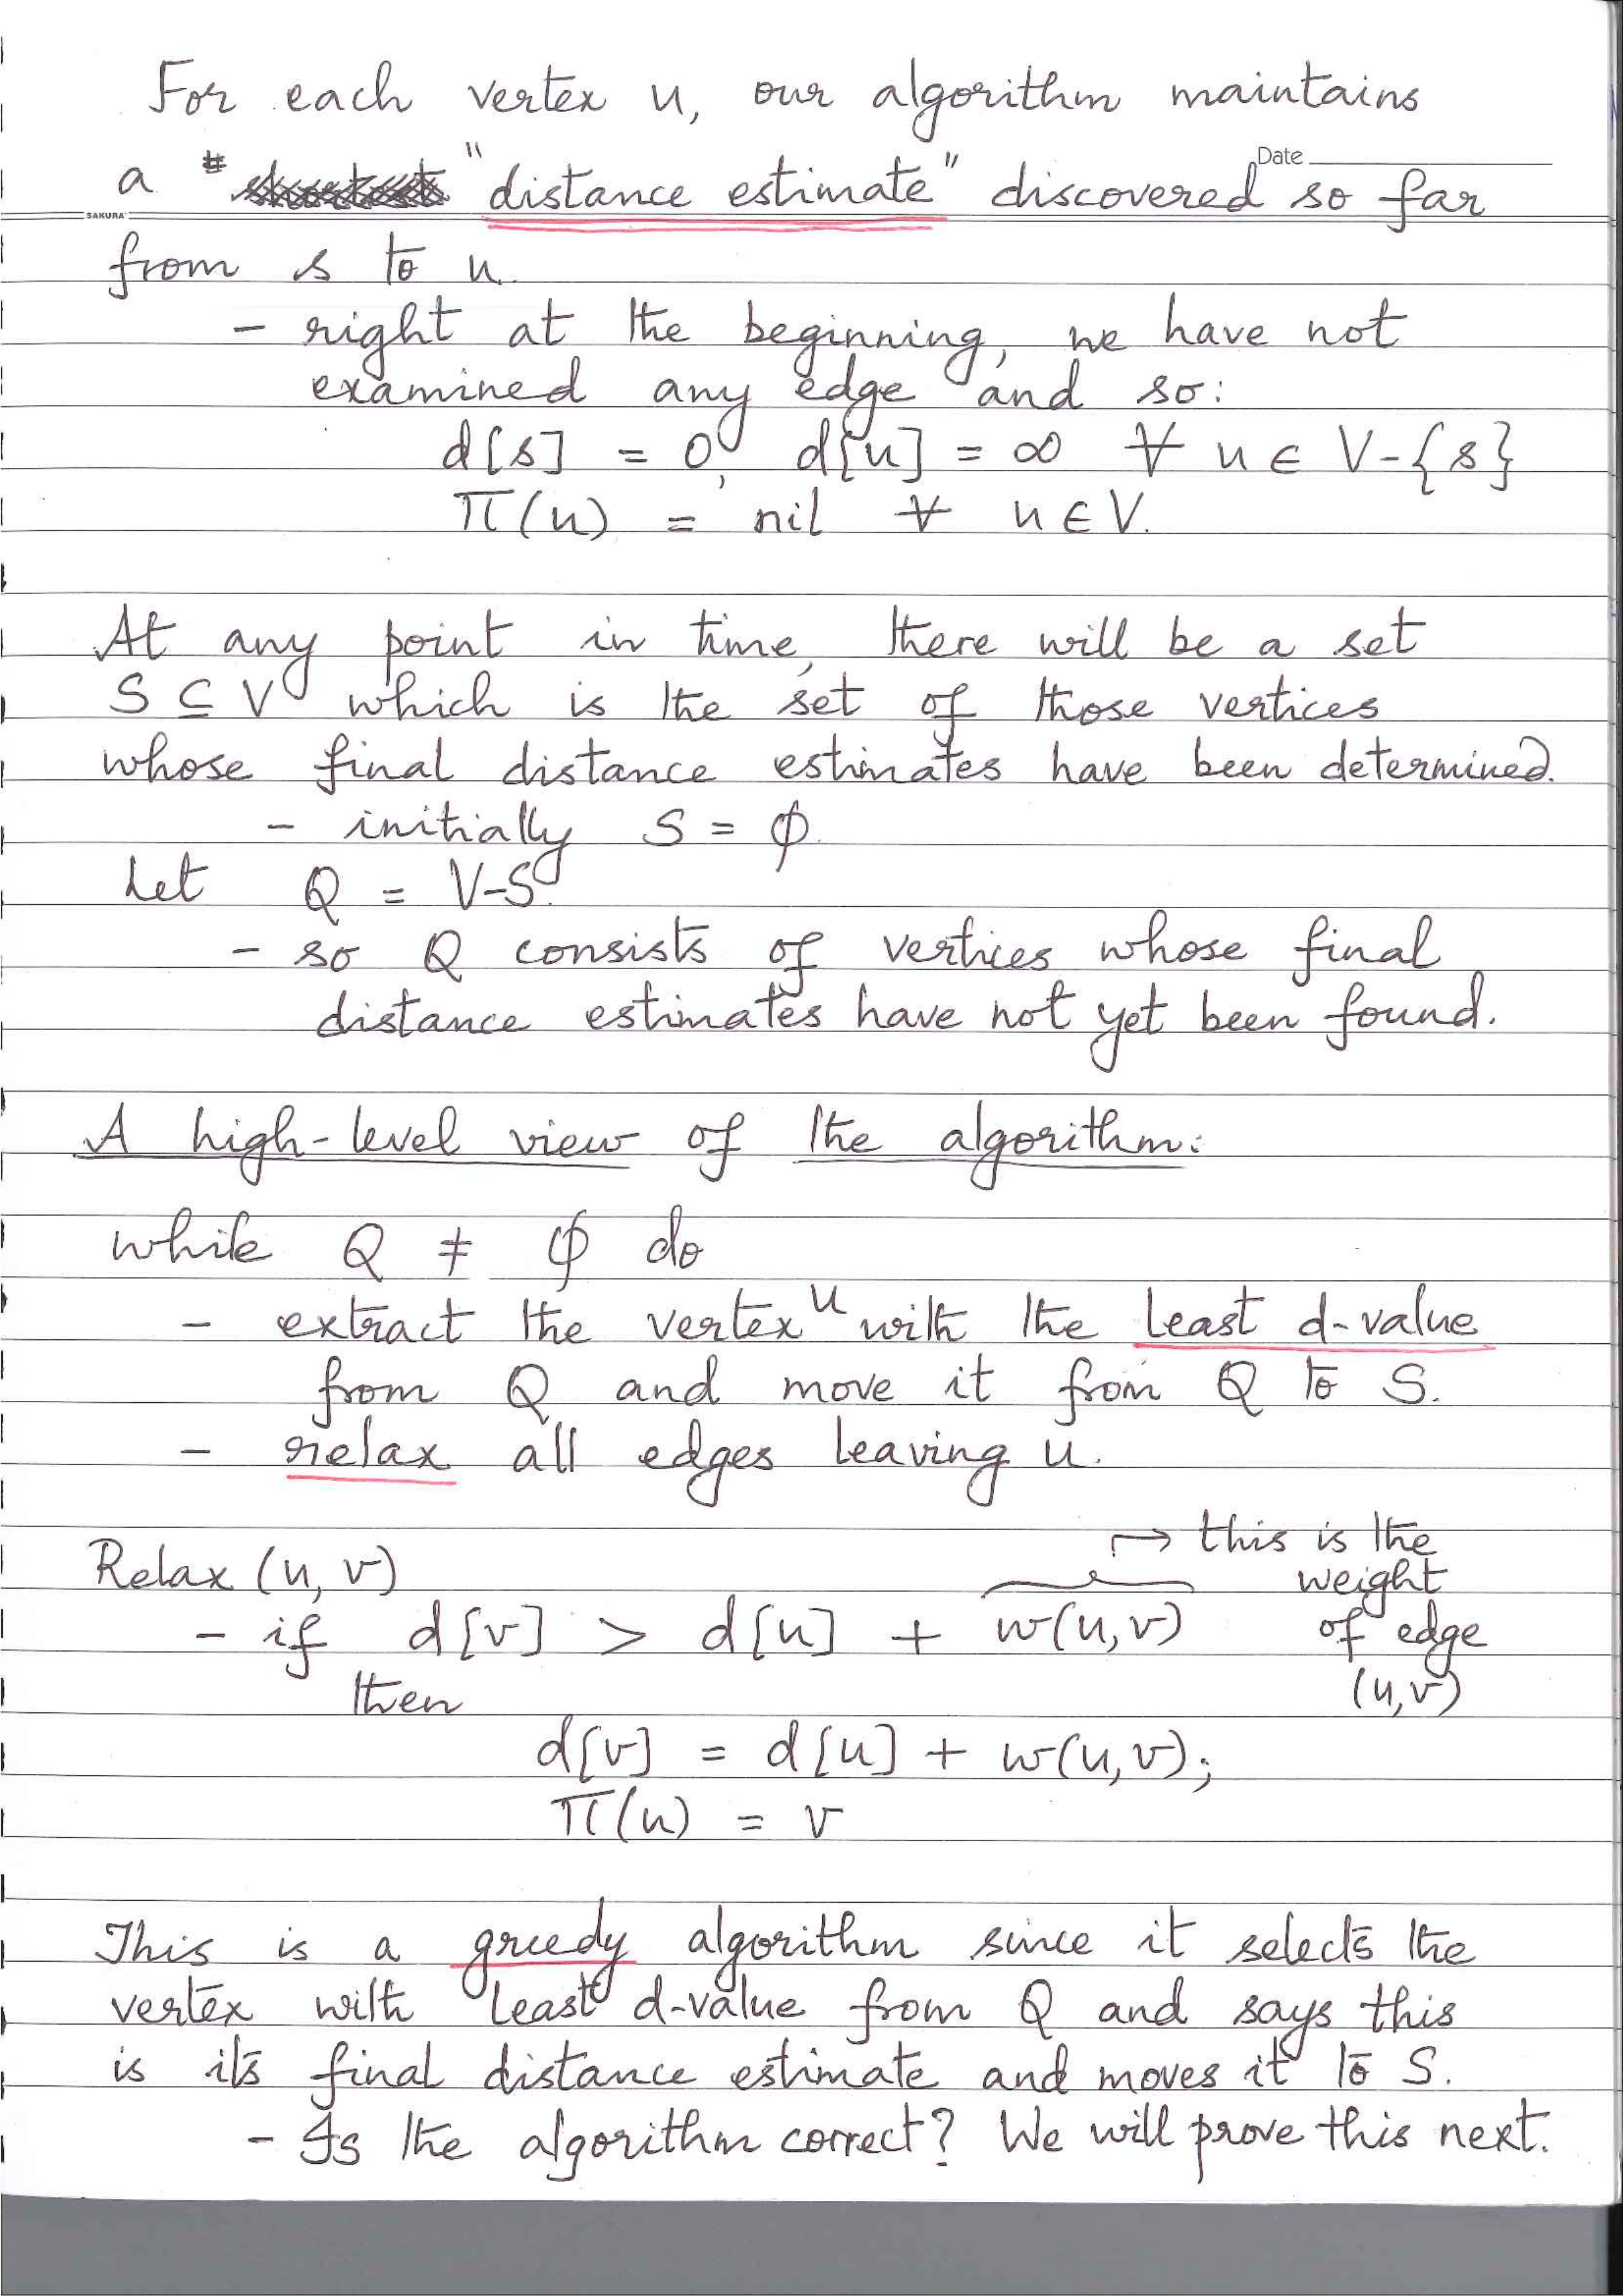 For each vertex u, our algorithm maintains
Date
a "distance estimate" discovered so far
SAKURA
from s to u.
- right at the beginning, we have not
examined any edge and so:
d[s] = 0, d[u] = ∞ ∀ u ∈ V-{s}
π(u) = nil ∀ u ∈ V.
At any point in time, there will be a set
S ⊆ V which is the set of those vertices
whose final distance estimates have been determined.
- initially S = ϕ.
Let Q = V-S.
- so Q consists of vertices whose final
distance estimates have not yet been found.
A high-level view of the algorithm:
while Q ≠ ϕ do
- extract the vertex u with the least d-value
from Q and move it from Q to S.
- relax all edges leaving u.
↦ this is the
Relax (u, v)
weight
- if d[v] > d[u] + w(u,v)
of edge
then
(u,v)
d[v] = d[u] + w(u,v);
π(u) = v
This is a greedy algorithm since it selects the
vertex with least d-value from Q and says this
is its final distance estimate and moves it to S.
- Is the algorithm correct? We will prove this next.